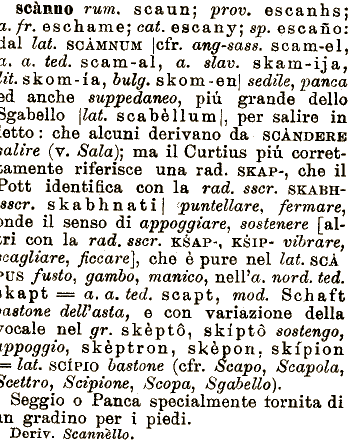 scànno rum. scaun; prov. escanhs;
a. fr. eschame; cat. escany; sp. escaño:
dal lat. SCÀMNUM [cfr. ang-sass. scam-el,
a. a. ted. scam-al, a. slav. skam-ija,
lit. skom-ia, bulg. skom-en] sedile, panca
ed anche suppedaneo, piú grande dello
Sgabello [lat. scabèllum], per salire in
letto: che alcuni derivano da SCÀNDERE
salire (v. Sala); ma il Curtius piú corret-
tamente riferisce una rad. SKAP-, che il
Pott identifica con la rad. sscr. SKABH-
[sscr. skabhnati] puntellare, fermare,
onde il senso di appoggiare, sostenere [al-
tri con la rad. sscr. KŚAP-, KŚIP- vibrare,
scagliare, ficcare], che è pure nel lat. SCÀ
PUS fusto, gambo, manico, nell'a. nord. ted.
skapt = a. a. ted. scapt, mod. Schaft
bastone dell'asta, e con variazione della
vocale nel gr. skèptô, skíptô sostengo,
appoggio, skèptron, skèpon, skípion
= lat. SCÍPIO bastone (cfr. Scapo, Scapola,
Scettro, Scipione, Scopa, Sgabello).
Seggio o Panca specialmente fornita di
un gradino per i piedi.
Deriv. Scannèllo.